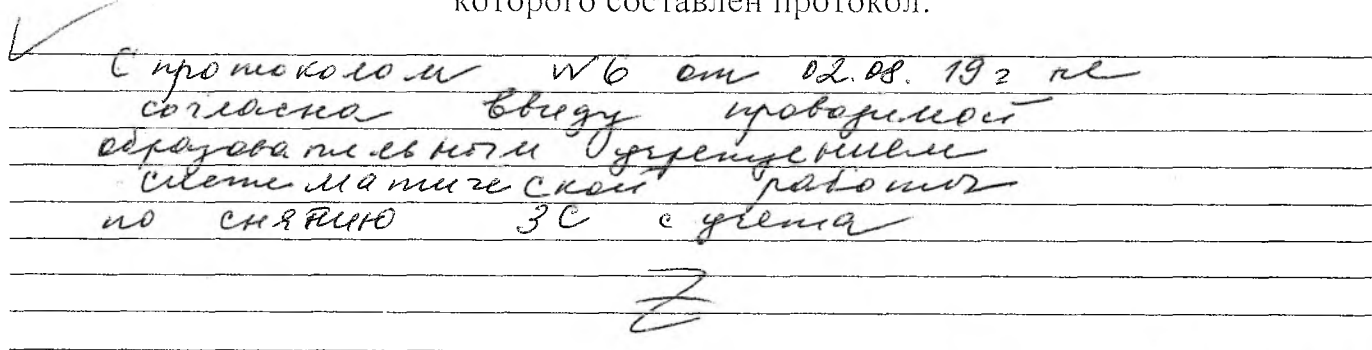 которого составлен протокол:
С протоколом №6 от 02.08.19г не
согласна ввиду проводимой
образовательным учреждением
систематической работы
по снятию ЗС с учета